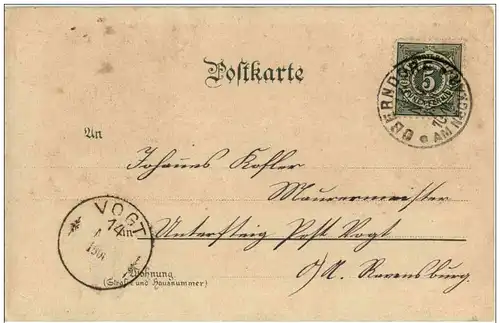 Postkarte
5
OBERNDORF
AM NECKAR
An
Johannes Kohler
Maurermeister
VOGT
14
in
Untersteig Post Vogt
O/A. Ravensburg.
Wohnung
(Straße und Hausnummer)